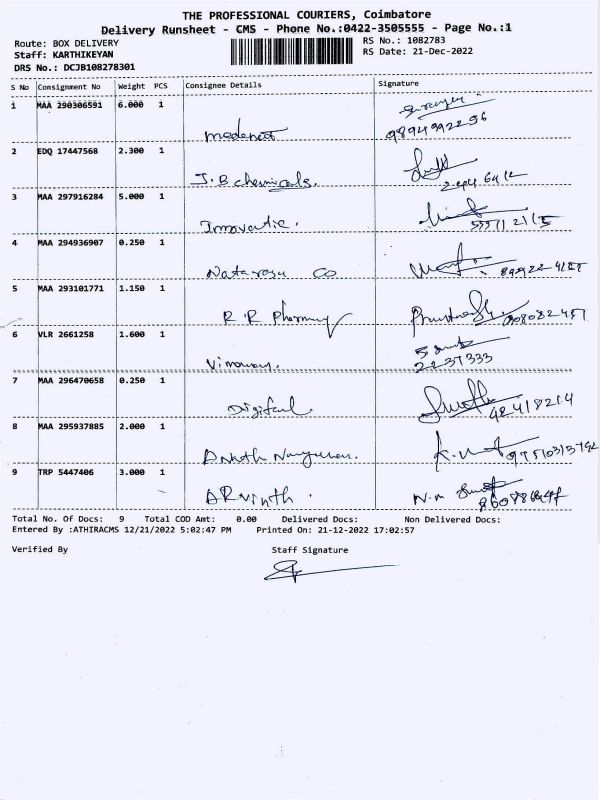 THE PROFESSIONAL COURIERS, Coimbatore
Delivery Runsheet - CMS - Phone No.:0422-3505555 - Page No.:1
Route: BOX DELIVERY
Staff: KARTHIKEYAN
DRS No.: DCJB108278301
RS No.: 1082783
RS Date: 21-Dec-2022
S No Consignment No Weight PCS Consignee Details Signature
1 MAA 290306591 6.000 1
2 EDQ 17447568 2.300 1 J.B chemicals.
3 MAA 297916284 5.000 1
4 MAA 294936907 0.250 1 Nataraju Co
5 MAA 293101771 1.150 1 R.R Pharmacy
6 VLR 2661258 1.600 1
2237333
7 MAA 296470658 0.250 1
42418214
8 MAA 295937885 2.000 1
9 TRP 5447406 3.000 1 ARvinth.
Total No. Of Docs: 9 Total COD Amt: 0.00 Delivered Docs: Non Delivered Docs:
Entered By :ATHIRACMS 12/21/2022 5:02:47 PM Printed On: 21-12-2022 17:02:57
Verified By Staff Signature